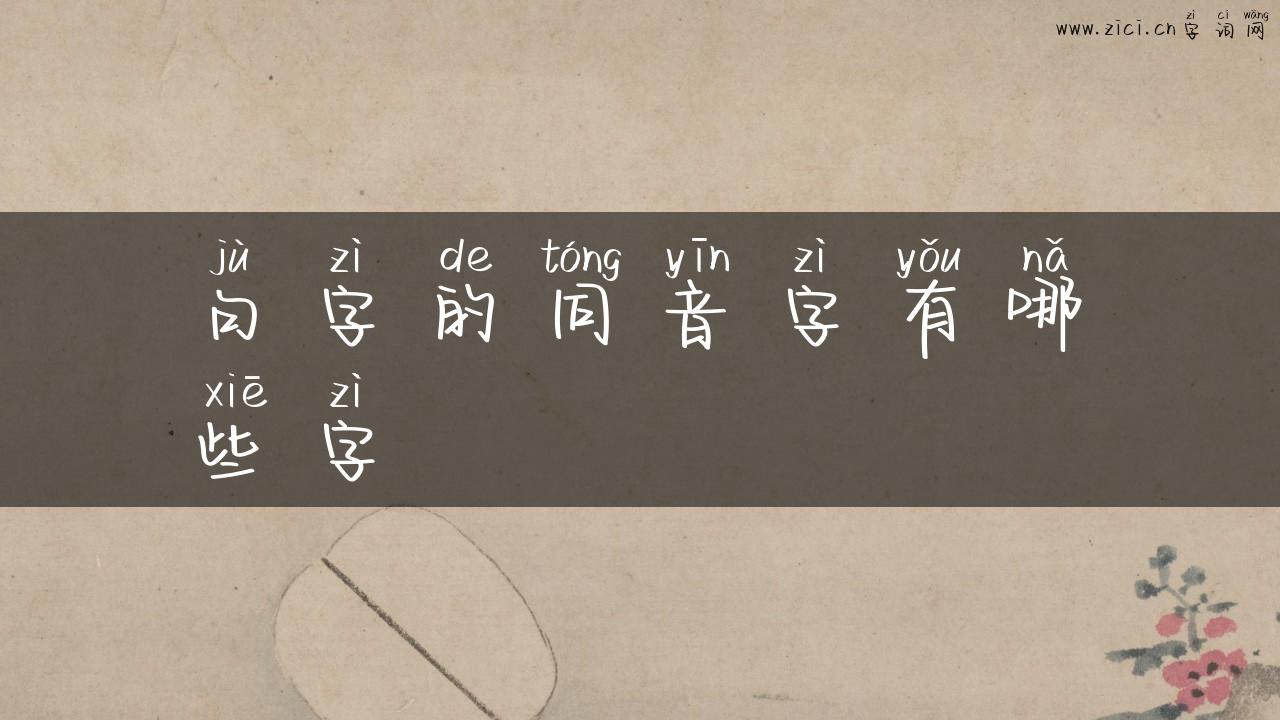 zì cí wǎng
www.zici.cn 字词网
jù zì de tóng yīn zì yǒu nǎ
句字的同音字有哪
xiē zì
些字